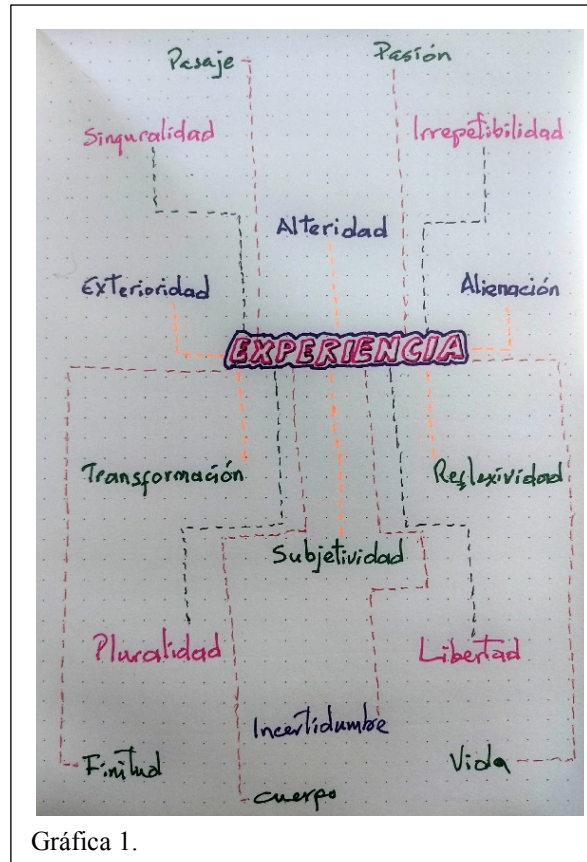 Pasaje
Pasión
Singuralidad
Irrepetibilidad
Alteridad
Exterioridad
Alienación
EXPERIENCIA
Transformación
Reflexividad
Subjetividad
Pluralidad
Libertad
Incertidumbre
Finitud
Vida
cuerpo
Gráfica 1.